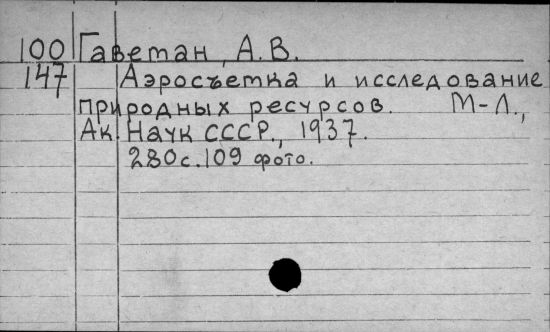 100 Гаветан, А.В.
147 Аэросъетка и исследование
природных ресурсов. М-Л.,
Ак. Наук СССР., 1937.
280с. 109 фото.